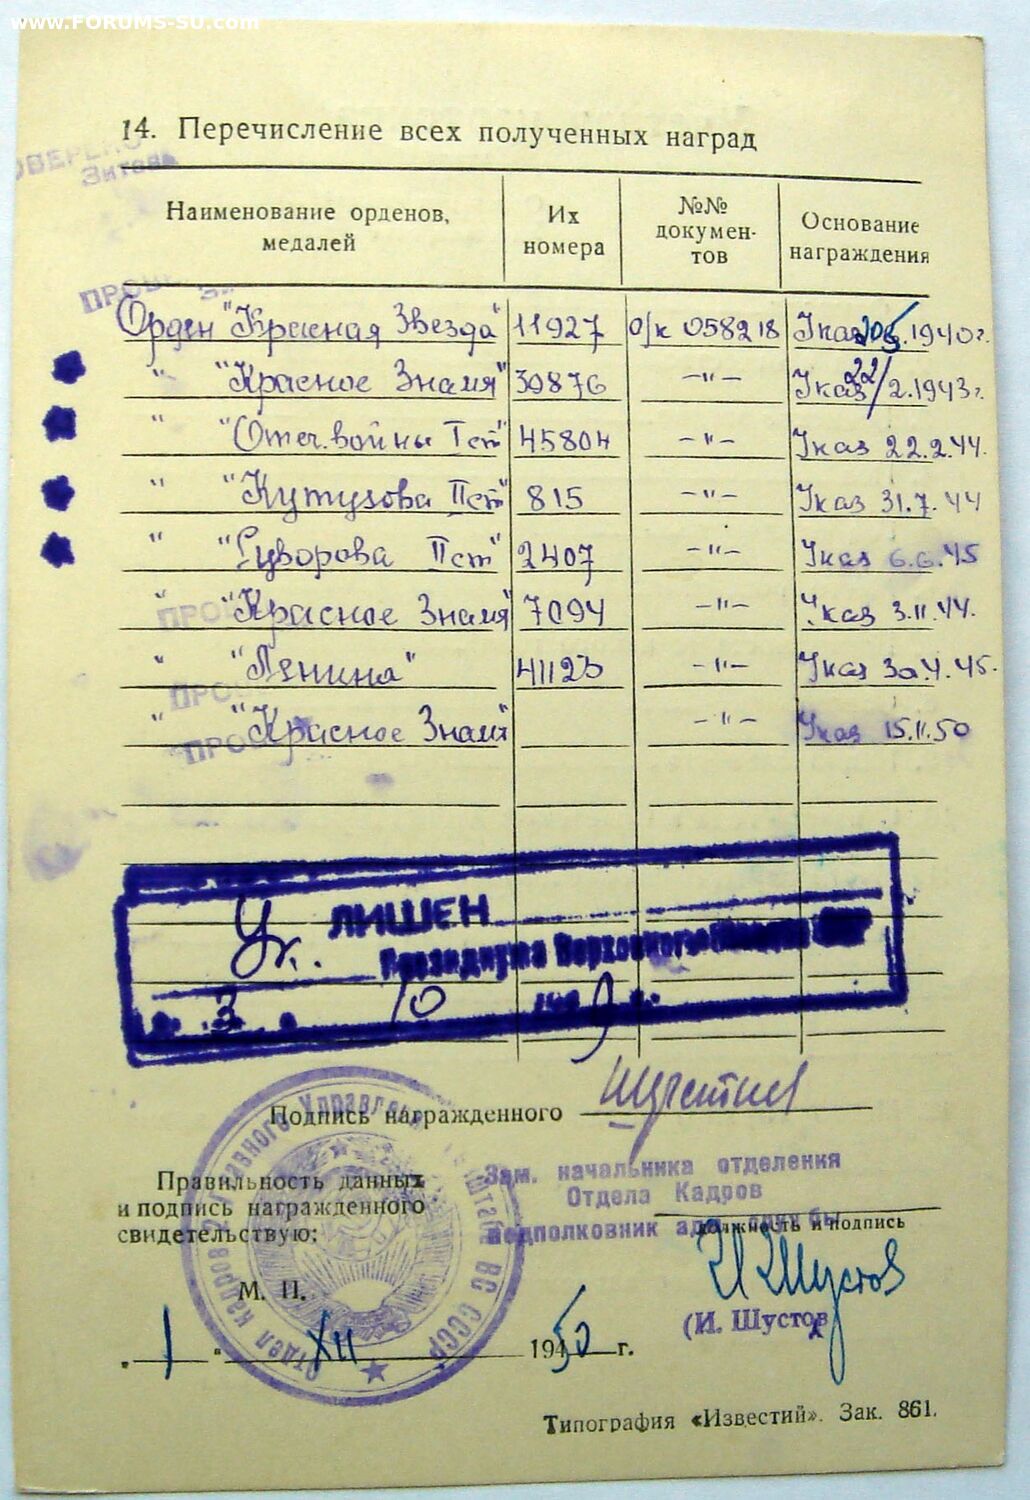 www.FORUMS-SU.com
14. Перечисление всех полученных наград
Наименование орденов, медалей
Их номера
№№ докумен-тов
Основание награждения
Орден "Красная Звезда" 11927 о/к 058218 Указ 1940г.
" "Красное Знамя" 30876 —"— Указ 22/2.1943г.
" "Отеч. войны I ст" 45804 —"— Указ 22.2.44.
" "Кутузова II ст" 815 —"— Указ 31.7.44
" "Суворова II ст" 2407 —"— Указ 6.6.45
" "Красное Знамя" 7094 —"— Указ 3.11.44.
" "Ленина" 41123 —"— Указ 30.4.45.
" "Красное Знамя" —"— Указ 15.11.50
ЛИШЕН
Ук. Президиума Верховного
3 10
Подпись награжденного
Правильность данных
и подпись награжденного
свидетельствую:
Зам. начальника отделения
Отдела Кадров
подполковник адм. службы
должность и подпись
И Шустов
(И. Шустов
М. П.
Отдел кадров 2 Главного Управления Штаба ВС СССР
„ 1 " XII 1950 г.
Типография «Известий». Зак. 861.